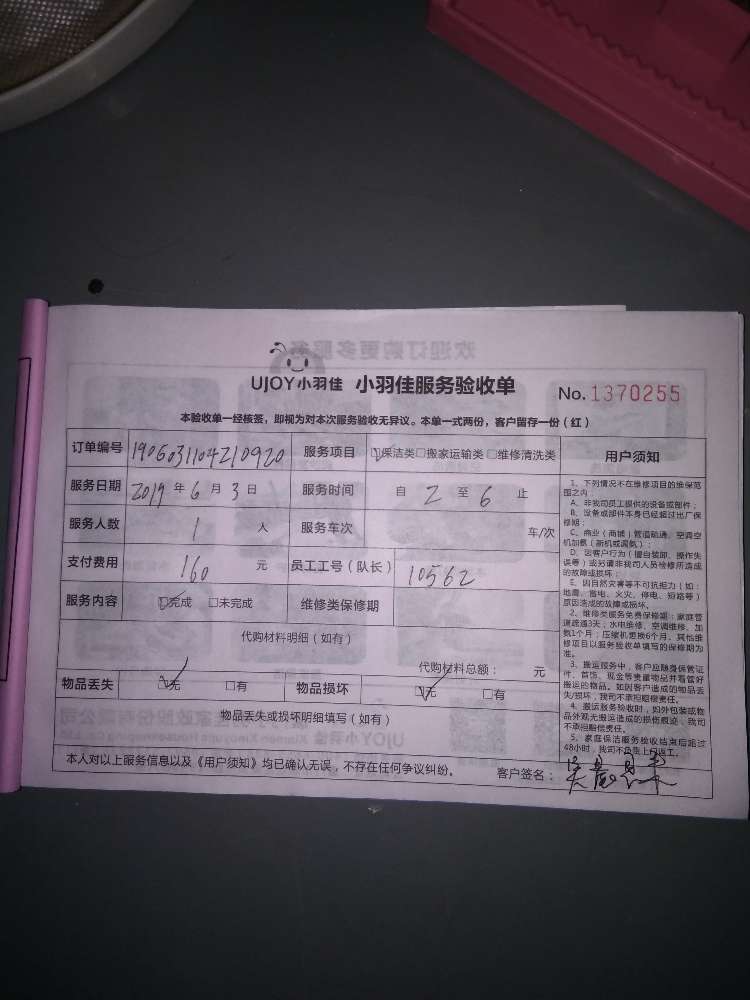 UJOY小羽佳 小羽佳服务验收单 No. 1370255
本验收单一经核签，即视为对本次服务验收无异议。本单一式两份，客户留存一份（红）
订单编号 1906031104210920 服务项目 ☑保洁类□搬家运输类□维修清洗类
服务日期 2019 年 6 月 3 日 服务时间 自 2 至 6 止
服务人数 1 人 服务车次 车/次
支付费用 160 元 员工工号（队长） 10562
服务内容 ☑完成 □未完成 维修类保修期
代购材料明细（如有）
代购材料总额： 元
物品丢失 ☑无 □有 物品损坏 ☑无 □有
物品丢失或损坏明细填写（如有）
本人对以上服务信息以及《用户须知》均已确认无误，不存在任何争议纠纷。 客户签名：
用户须知
1、下列情况不在维修项目的维保范
围之内：
A、非我司员工提供的设备或部件；
B、设备或部件本身已经超过出厂保
修期；
C、商业（商铺）管道疏通、空调空
机加氨（新机或漏氨）；
D、因客户行为（擅自装卸、操作失
误等）或另请非我司人员修所造成
的故障或损坏；
E、因自然灾害等不可抗拒力（如：
地震、雷电、火灾、停电、短路等）
原因造成的故障或损坏。
2、维修类服务免费保修期：家庭管
道疏通3天；水电维修、空调维修、加
氨1个月；压缩机更换6个月，其他维
修项目以服务验收单填写的保修期为
准。
3、搬运服务中，客户应随身保管证
件、首饰、现金等贵重物品并看管好
搬运的物品。如因客户造成的物品丢
失/损坏，我司不承担赔偿责任。
4、搬运服务验收时，如外包装或物
品外观无搬运造成的损伤痕迹，我司
不承担赔偿责任。
5、家庭保洁服务验收结束后超过
48小时，我司不负责上门返工。